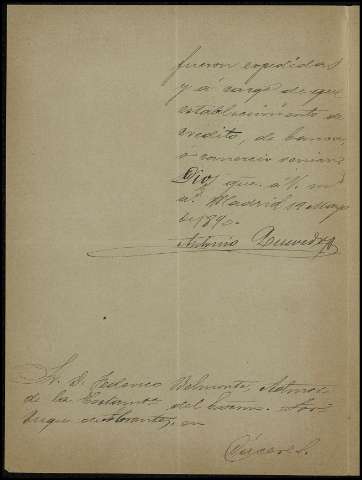 fueron expedidas
y á cargo de que
establecimiento de
crédito, de banca,
ó comercio venian
Dios gue. á V. m.s
a.s Madrid 12 Mayo
de 1890.
Antonio Quevedo
Sr. D. Federico Belmonte,
de la del Excmo.
Duque de Abrantes, en
Cáceres.